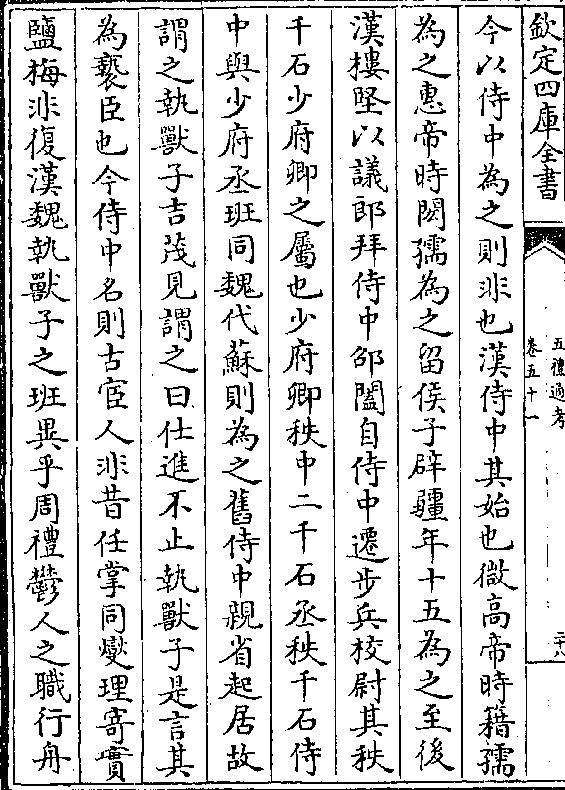 欽定四庫全書
五禮通考
卷五十一
二十八
今以侍中為之則非也漢侍中其始也微高帝時籍孺
為之惠帝時閎孺為之留侯子辟疆年十五為之至後
漢樓堅以議郎拜侍中邵闔自侍中遷步兵校尉其秩
千石少府卿之屬也少府卿秩中二千石丞秩千石侍
中與少府丞班同魏代蘇則為之舊侍中親省起居故
謂之執獸子吉茂見謂之曰仕進不止執獸子是言其
為褻臣也今侍中名則古官人非昔任掌同燮理寄實
鹽梅非復漢魏執獸子之班異乎周禮鬱人之職行舟